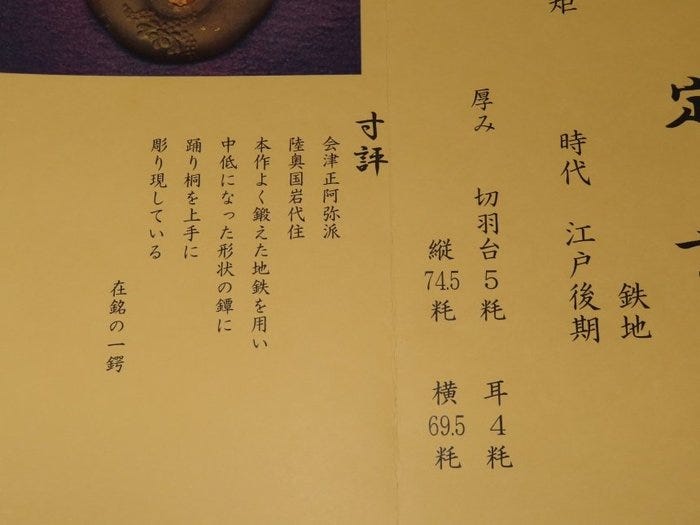 定
鉄地
時代 江戸後期
厚み 切羽台5粍 耳4粍
縦74.5粍 横69.5粍
寸評
会津正阿弥派
陸奥国岩代住
本作よく鍛えた地鉄を用い
中低になった形状の鐔に
踊り桐を上手に
彫り現している
在銘の一鍔